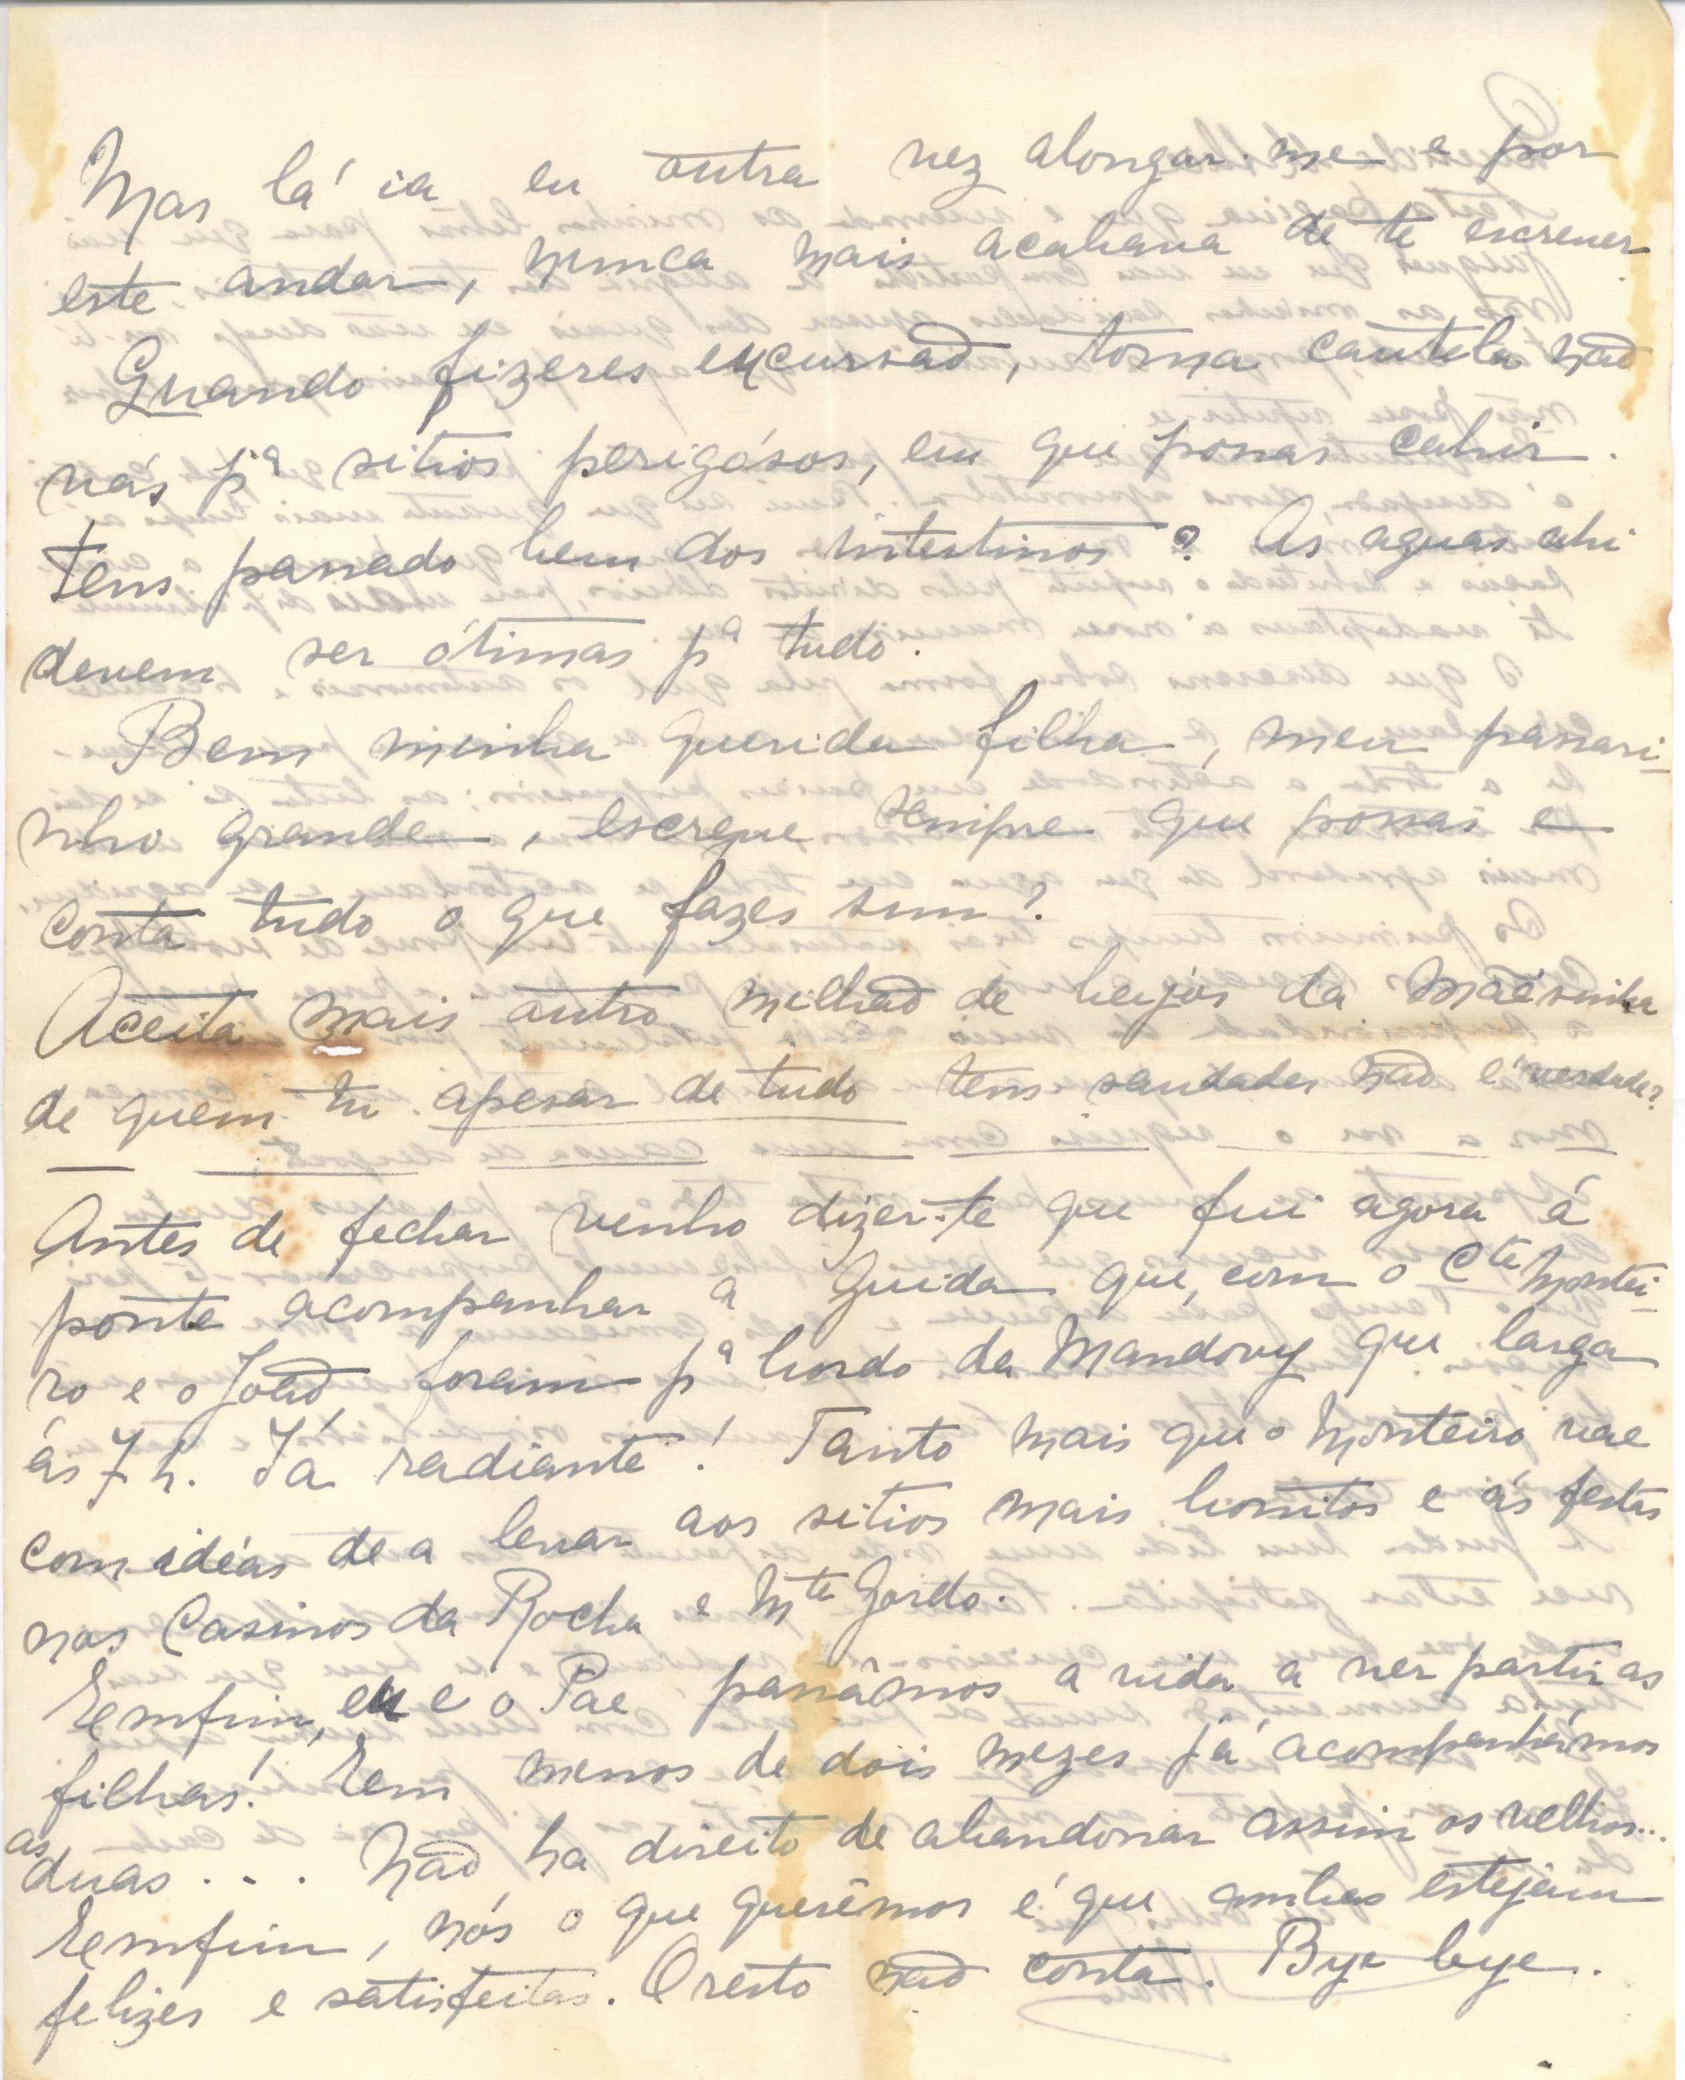 Mas lá ia eu outra vez alongar-me e por
este andar, nunca mais acabava de te escrever.
Quando fizeres excursão, toma cautela não
vás pª sitios perigósos, em que possas cahir.
Tens passado bem dos intestinos? As aguas ahi
devem ser ótimas pª tudo.
Bem minha querida filha, meu passari-
nho grande, escreve sempre que possas e
conta tudo o que fazes sim?
Aceita mais outro milhão de beijos da Mãesinha
de quem tu apesar de tudo tens saudades não é verdade?
Antes de fechar venho dizer-te que fui agora á
ponte acompanhar a Guida que, com o Cte Montei-
ro e o João foram pª bordo da Mandovy que larga
ás 7 h. Já radiante! Tanto mais que o Monteiro vae
com idéas de a levar aos sitios mais bonitos e ás festas
nos Casinos da Rocha e Mte Gordo.
Emfim, eu e o Pae passâmos a vida a ver partir as
filhas! Em menos de dois mezes já acompanhámos
as duas... Não ha direito de abandonar assim os velhos...
Emfim, nós o que querêmos é que ambas estejam
felizes e satisfeitas. O resto não conta. Bye bye.